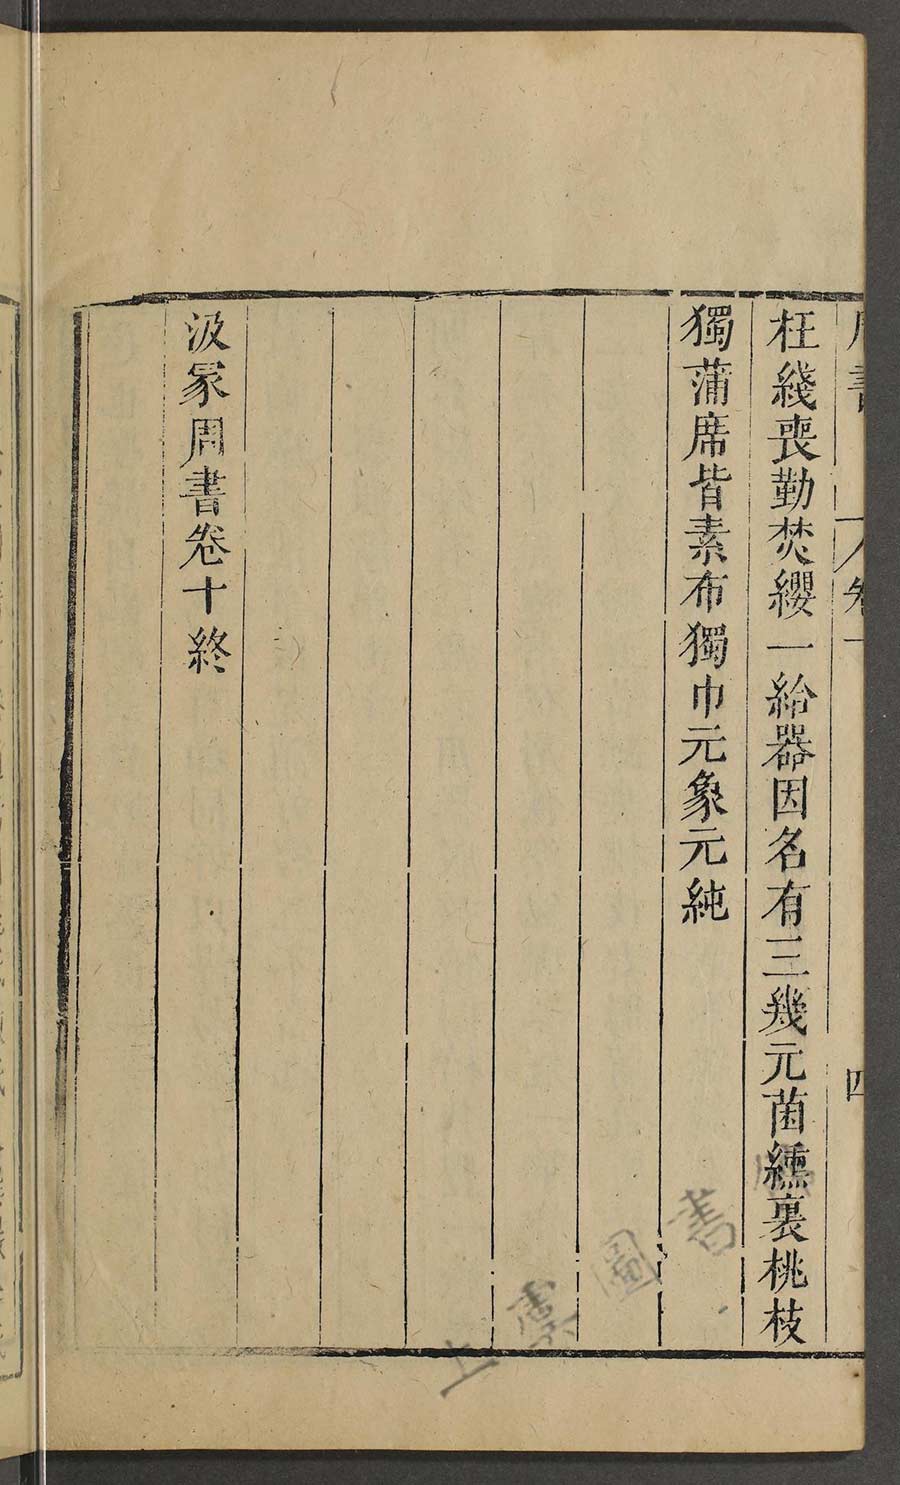 周書 卷十 四
枉綫喪勤焚纓一給器因名有三幾元茵纁裏桃枝
獨蒲席皆素布獨巾元象元純
汲冢周書卷十終
上虞圖書館